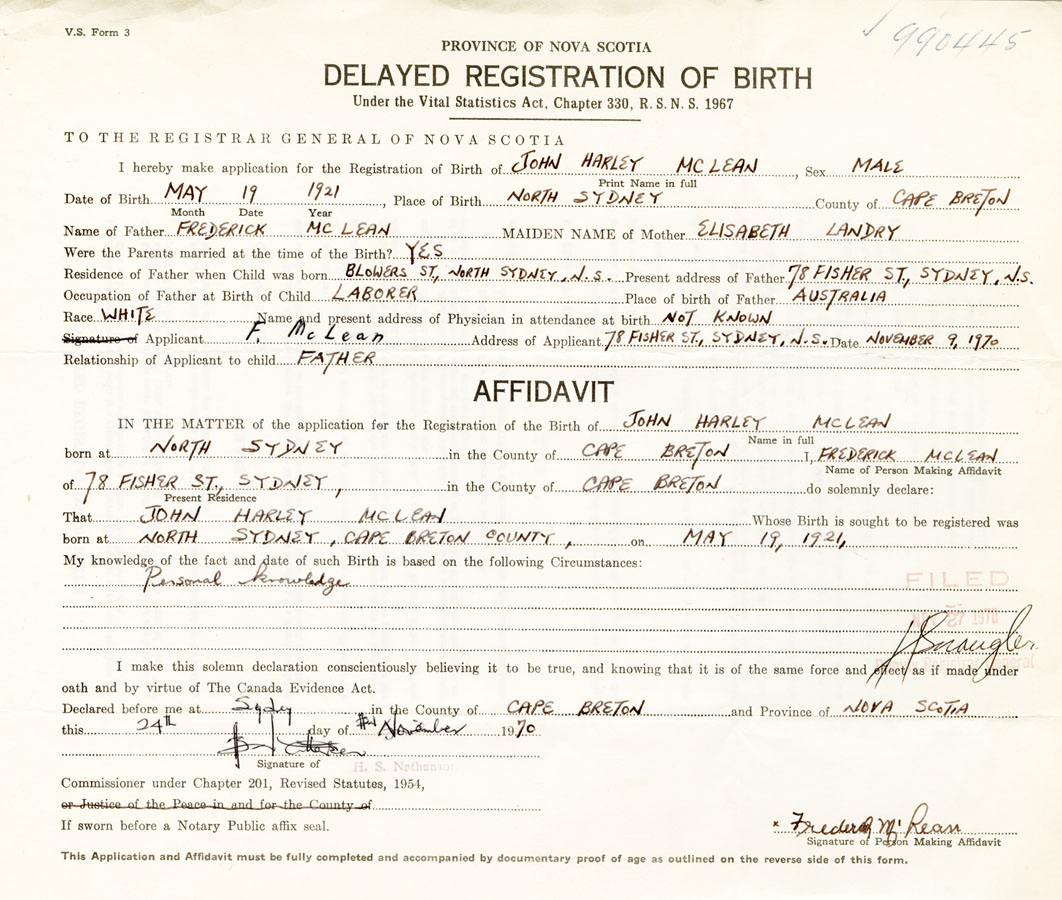 V.S. Form 3
990445
PROVINCE OF NOVA SCOTIA
DELAYED REGISTRATION OF BIRTH
Under the Vital Statistics Act, Chapter 330, R.S.N.S. 1967
TO THE REGISTRAR GENERAL OF NOVA SCOTIA
I hereby make application for the Registration of Birth of JOHN HARLEY MC LEAN, Sex MALE
Print Name in full
Date of Birth MAY 19 1921, Place of Birth NORTH SYDNEY County of CAPE BRETON
Month Date Year
Name of Father FREDERICK MC LEAN MAIDEN NAME of Mother ELISABETH LANDRY
Were the Parents married at the time of the Birth? YES
Residence of Father when Child was born BLOWERS ST, NORTH SYDNEY, N.S. Present address of Father 78 FISHER ST., SYDNEY, N.S.
Occupation of Father at Birth of Child LABORER Place of birth of Father AUSTRALIA
Race WHITE Name and present address of Physician in attendance at birth NOT KNOWN
Signature of Applicant F. McLean Address of Applicant 78 FISHER ST., SYDNEY, N.S. Date NOVEMBER 9, 1970
Relationship of Applicant to child FATHER
AFFIDAVIT
IN THE MATTER of the application for the Registration of the Birth of JOHN HARLEY MCLEAN
Name in full
born at NORTH SYDNEY in the County of CAPE BRETON I, FREDERICK MCLEAN
Name of Person Making Affidavit
of 78 FISHER ST., SYDNEY, in the County of CAPE BRETON do solemnly declare:
Present Residence
That JOHN HARLEY MCLEAN Whose Birth is sought to be registered was
born at NORTH SYDNEY, CAPE BRETON COUNTY, on MAY 19, 1921,
My knowledge of the fact and date of such Birth is based on the following Circumstances:
Personal knowledge
FILED
27 1970
I make this solemn declaration conscientiously believing it to be true, and knowing that it is of the same force and effect as if made under
oath and by virtue of The Canada Evidence Act.
Declared before me at Sydney in the County of CAPE BRETON and Province of NOVA SCOTIA
this 24th day of November 1970
Signature of
H. S. Nathanson
Commissioner under Chapter 201, Revised Statutes, 1954,
or Justice of the Peace in and for the County of
If sworn before a Notary Public affix seal.
x Frederick McLean
Signature of Person Making Affidavit
This Application and Affidavit must be fully completed and accompanied by documentary proof of age as outlined on the reverse side of this form.